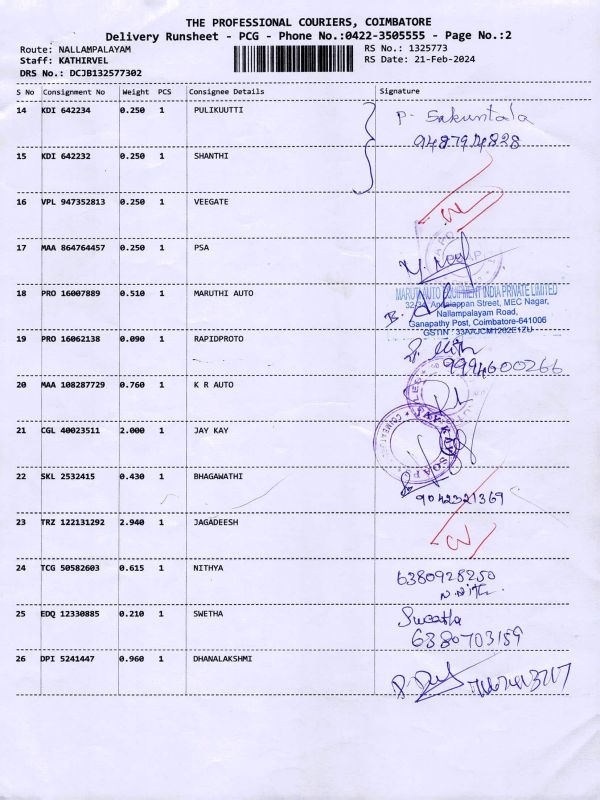 THE PROFESSIONAL COURIERS, COIMBATORE
Delivery Runsheet - PCG - Phone No.:0422-3505555 - Page No.:2
Route: NALLAMPALAYAM RS No.: 1325773
Staff: KATHIRVEL RS Date: 21-Feb-2024
DRS No.: DCJB132577302
S No Consignment No Weight PCS Consignee Details Signature
14 KDI 642234 0.250 1 PULIKUUTTI P. Sakuntala
9487974828
15 KDI 642232 0.250 1 SHANTHI
16 VPL 947352813 0.250 1 VEEGATE
17 MAA 864764457 0.250 1 PSA
MARUTI AUTO EQUIPMENT INDIA PRIVATE LIMITED
18 PRO 16007889 0.510 1 MARUTHI AUTO
Street, MEC Nagar,
Nallampalayam Road,
Ganapathy Post, Coimbatore-641006
GSTIN : 33AAJCM1262E1ZU
19 PRO 16062138 0.090 1 RAPIDPROTO
9994600266
20 MAA 108287729 0.760 1 K R AUTO
21 CGL 40023511 2.000 1 JAY KAY
JAY KAY SOAP
22 SKL 2532415 0.430 1 BHAGAWATHI
9042321369
23 TRZ 122131292 2.940 1 JAGADEESH
24 TCG 50582603 0.615 1 NITHYA 6380928250
25 EDQ 12330885 0.210 1 SWETHA Swetha
6380703159
26 DPI 5241447 0.960 1 DHANALAKSHMI